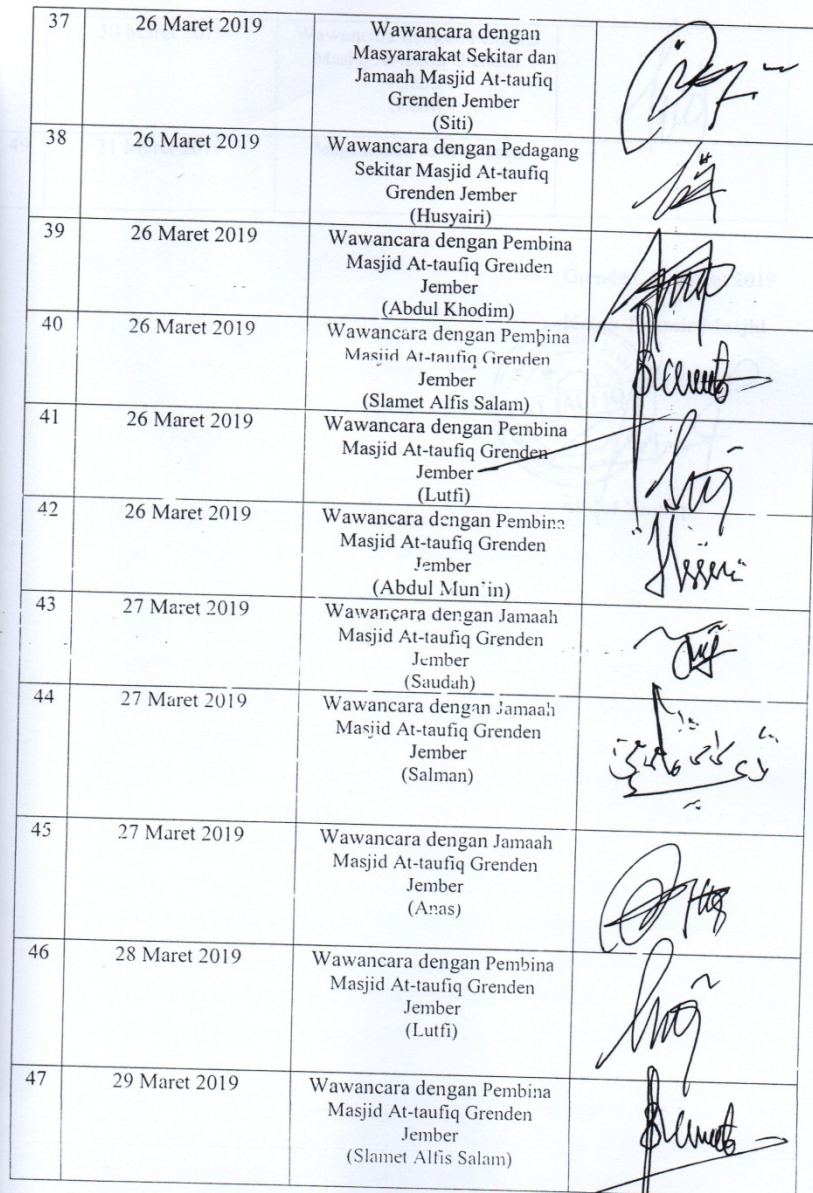 37 26 Maret 2019 Wawancara dengan
Masyararakat Sekitar dan
Jamaah Masjid At-taufiq
Grenden Jember
(Siti)
38 26 Maret 2019 Wawancara dengan Pedagang
Sekitar Masjid At-taufiq
Grenden Jember
(Husyairi)
39 26 Maret 2019 Wawancara dengan Pembina
Masjid At-taufiq Grenden
Jember
(Abdul Khodim)
40 26 Maret 2019 Wawancara dengan Pembina
Masjid At-taufiq Grenden
Jember
(Slamet Alfis Salam)
41 26 Maret 2019 Wawancara dengan Pembina
Masjid At-taufiq Grenden
Jember
(Lutfi)
42 26 Maret 2019 Wawancara dengan Pembina
Masjid At-taufiq Grenden
Jember
(Abdul Mun`in)
43 27 Maret 2019 Wawancara dengan Jamaah
Masjid At-taufiq Grenden
Jember
(Saudah)
44 27 Maret 2019 Wawancara dengan Jamaah
Masjid At-taufiq Grenden
Jember
(Salman)
45 27 Maret 2019 Wawancara dengan Jamaah
Masjid At-taufiq Grenden
Jember
(Anas)
46 28 Maret 2019 Wawancara dengan Pembina
Masjid At-taufiq Grenden
Jember
(Lutfi)
47 29 Maret 2019 Wawancara dengan Pembina
Masjid At-taufiq Grenden
Jember
(Slamet Alfis Salam)